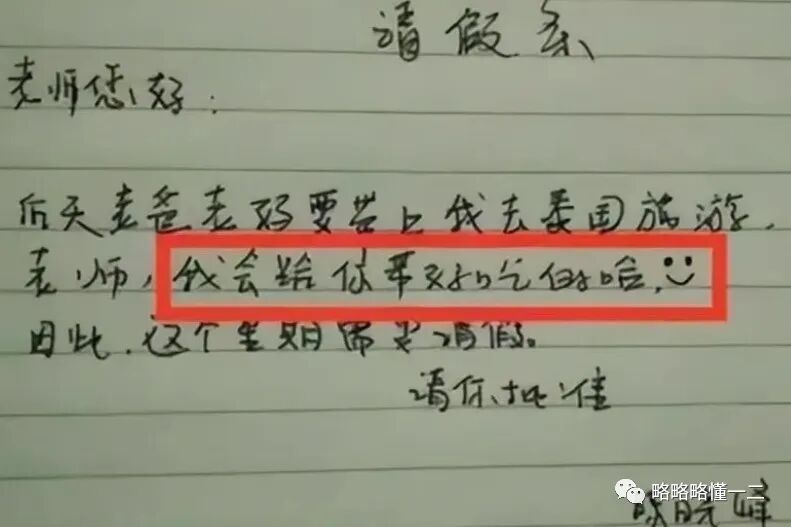 请假条
老师您好：
后天老爸老妈要带上我去泰国旅游，
老师，我会给你带好吃的哈，
因此，这个星期需要请假。
请你批准
略略略懂一二